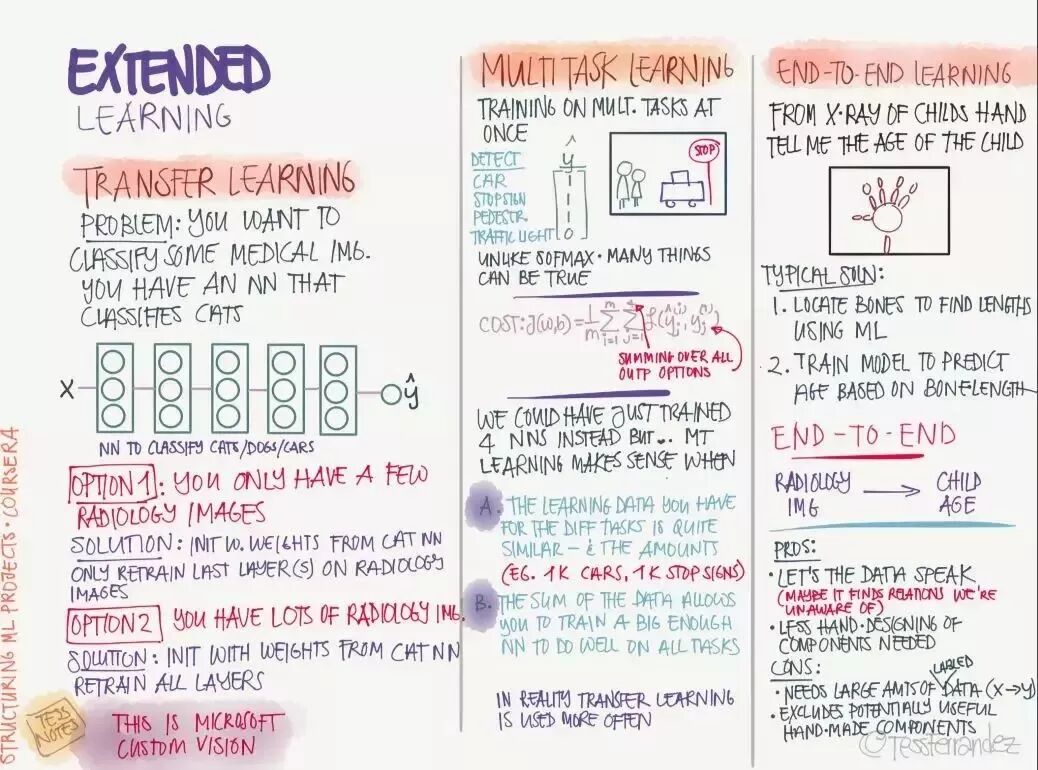 EXTENDED
LEARNING
TRANSFER LEARNING
PROBLEM: YOU WANT TO
CLASSIFY SOME MEDICAL IMG.
YOU HAVE AN NN THAT
CLASSIFIES CATS
X
ŷ
NN TO CLASSIFY CATS/DOGS/CARS
OPTION 1: YOU ONLY HAVE A FEW
RADIOLOGY IMAGES
SOLUTION: INIT W. WEIGHTS FROM CAT NN
ONLY RETRAIN LAST LAYER(S) ON RADIOLOGY
IMAGES
OPTION 2 YOU HAVE LOTS OF RADIOLOGY IMG.
SOLUTION: INIT WITH WEIGHTS FROM CAT NN
RETRAIN ALL LAYERS
THIS IS MICROSOFT
CUSTOM VISION
TESS
NOTES
STRUCTURING ML PROJECTS · COURSERA
MULTI TASK LEARNING
TRAINING ON MULT. TASKS AT
ONCE
DETECT
CAR
STOPSIGN
PEDESTR.
TRAFFIC LIGHT
ŷ
0
STOP
UNLIKE SOFMAX · MANY THINGS
CAN BE TRUE
COST: J(w,b) = 1/m Σ i=1 m Σ j=1 4 ℒ(ŷj(i), yj(i))
SUMMING OVER ALL
OUTP OPTIONS
WE COULD HAVE JUST TRAINED
4 NNS INSTEAD BUT... MT
LEARNING MAKES SENSE WHEN
A. THE LEARNING DATA YOU HAVE
FOR THE DIFF TASKS IS QUITE
SIMILAR - & THE AMOUNTS
(EG. 1K CARS, 1K STOP SIGNS)
B. THE SUM OF THE DATA ALLOWS
YOU TO TRAIN A BIG ENOUGH
NN TO DO WELL ON ALL TASKS
IN REALITY TRANSFER LEARNING
IS USED MORE OFTEN
END-TO-END LEARNING
FROM X-RAY OF CHILDS HAND
TELL ME THE AGE OF THE CHILD
TYPICAL SOLN:
1. LOCATE BONES TO FIND LENGTHS
USING ML
2. TRAIN MODEL TO PREDICT
AGE BASED ON BONELENGTH
END-TO-END
RADIOLOGY IMG → CHILD AGE
PROS:
· LET'S THE DATA SPEAK
(MAYBE IT FINDS RELATIONS WE'RE
UNAWARE OF)
· LESS HAND-DESIGNING OF
COMPONENTS NEEDED
CONS:
LABLED
· NEEDS LARGE AMTS OF DATA (X→Y)
· EXCLUDES POTENTIALLY USEFUL
HAND-MADE COMPONENTS
@Tessferrandez